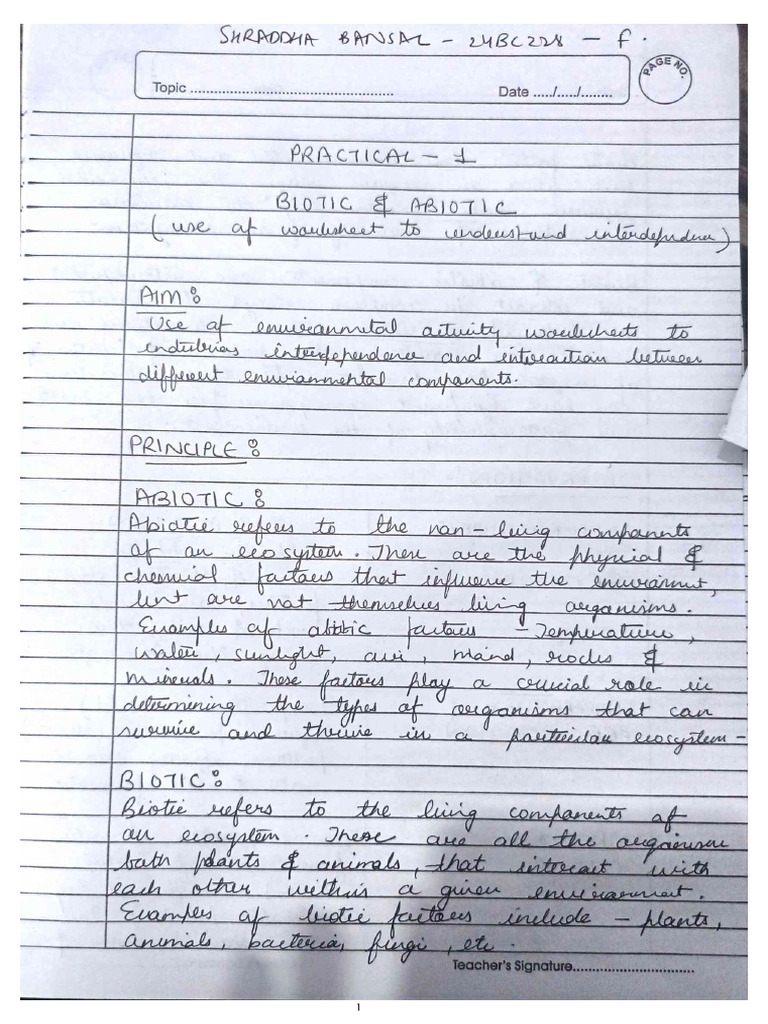 SHRADDHA BANSAL - 24BC228 - F.
PAGE NO.
Topic ................................................
Date ...../...../........
PRACTICAL - 1
BIOTIC & ABIOTIC
(use of worksheet to understand interdependence)
AIM:
Use of environmetal activity worksheets to
interdependence and interaction between
different environmental components.
PRINCIPLE:
ABIOTIC:
Abiotic refers to the non-living components
of an ecosystem. There are the physical &
chemical factors that influence the environment,
but are not themselves living organisms.
Examples of factors - Temperature,
water, sunlight, air, , rocks &
minerals. These factors play a crucial role in
determining the types of organisms that can
survive and thrive in a particular ecosystem-
BIOTIC:
Biotic refers to the living components of
an ecosystem. These are all the
both plants & animals, that interact with
each other within a given environment.
Examples of biotic factors include - plants,
animals, bacteria, fungi, etc.
Teacher's Signature................................
1